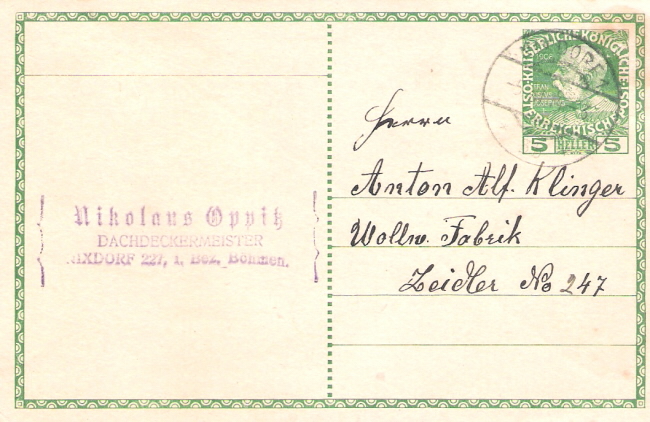 Nikolaus Oppitz
DACHDECKERMEISTER
NIXDORF 227, i. Bez. Böhmen.
KAISERLICHE KÖNIGLICHE
ÖSTERREICHISCHE POST
1908
5 HELLER 5
Herrn
Anton Alf. Klinger
Wollw. Fabrik
Zeidler No 247